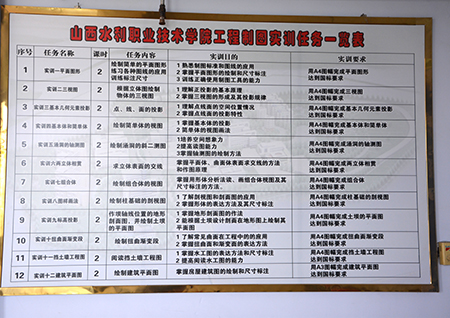 山西水利职业技术学院工程制图实训任务一览表
序号 任务名称 课时 任务内容 实训目的 实训要求
1 实训一平面图形 2 绘制简单的平面图形 练习各种图线的应用 训练标注尺寸 1 熟悉制图标准和图线的应用 2 掌握平面图形的绘制和尺寸标注 3 训练正确使用制图工具的能力 用A4图幅完成平面图形 达到国标要求
2 实训二三视图 2 根据立体图绘制 物体的三视图 1 理解正投影的基本原理 2 掌握三视图的形成及其投影规律 用A4图幅完成三视图 达到国标要求
3 实训三基本几何元素投影 2 点、线、面的投影 1 理解点线面的空间位置情况 2 掌握点线面的投影特性 用A4图幅完成基本几何元素投影 达到国标要求
4 实训四基本体和简单体 2 绘制简单体的视图 1 掌握基本体的投影 2 简单体的视图画法 用A4图幅完成基本体和简单体 达到国标要求
5 实训五涵洞的轴测图 2 绘制涵洞的斜二测图 1 培养空间想象 2 提高读图能力 3 掌握轴测图的绘制方法 用A4图幅完成涵洞的轴测图 达到国标要求
6 实训六两立体相贯 2 求立体表面的交线 掌握平面体、曲面体表面求交线的方法 和作图原理 用A4图幅完成两立体相贯 达到国标要求
7 实训七组合体 2 绘制组合体的视图 掌握用形体分析法读、画组合体视图及其 尺寸标注的方法. 用A4图幅完成组合体 达到国标要求
8 实训八图样画法 2 绘制柱基础的剖视图 1 了解剖视图和剖面图的应用 2 掌握剖视图的画法和尺寸标注 用A4图幅完成柱基础的剖视图 达到国标要求
9 实训九标高投影 2 作坝轴线位置的地形 剖面图，并绘制土坝 的平面图 1 掌握地形剖面图的作法 2 能根据土坝设计剖面在地形图上绘制其 平面图 用A4图幅完成土坝的平面图 达到国标要求
10 实训十扭曲面渐变段 2 绘制扭曲面渐变段 1 了解常见曲面在工程中的应用 2 掌握扭曲面和渐变面的表达方法 用A4图幅完成扭曲面渐变段 达到国标要求
11 实训十一挡土墙工程图 2 阅读挡土墙工程图 1 掌握水工图的表达方法和尺寸标注 2 提高阅读水工图的能力 用A3图幅完成挡土墙工程图 达到国标要求
12 实训十二建筑平面图 2 绘制建筑平面图 掌握房屋建筑图的绘制和尺寸标注 用A3图幅完成建筑平面图 达到国标要求